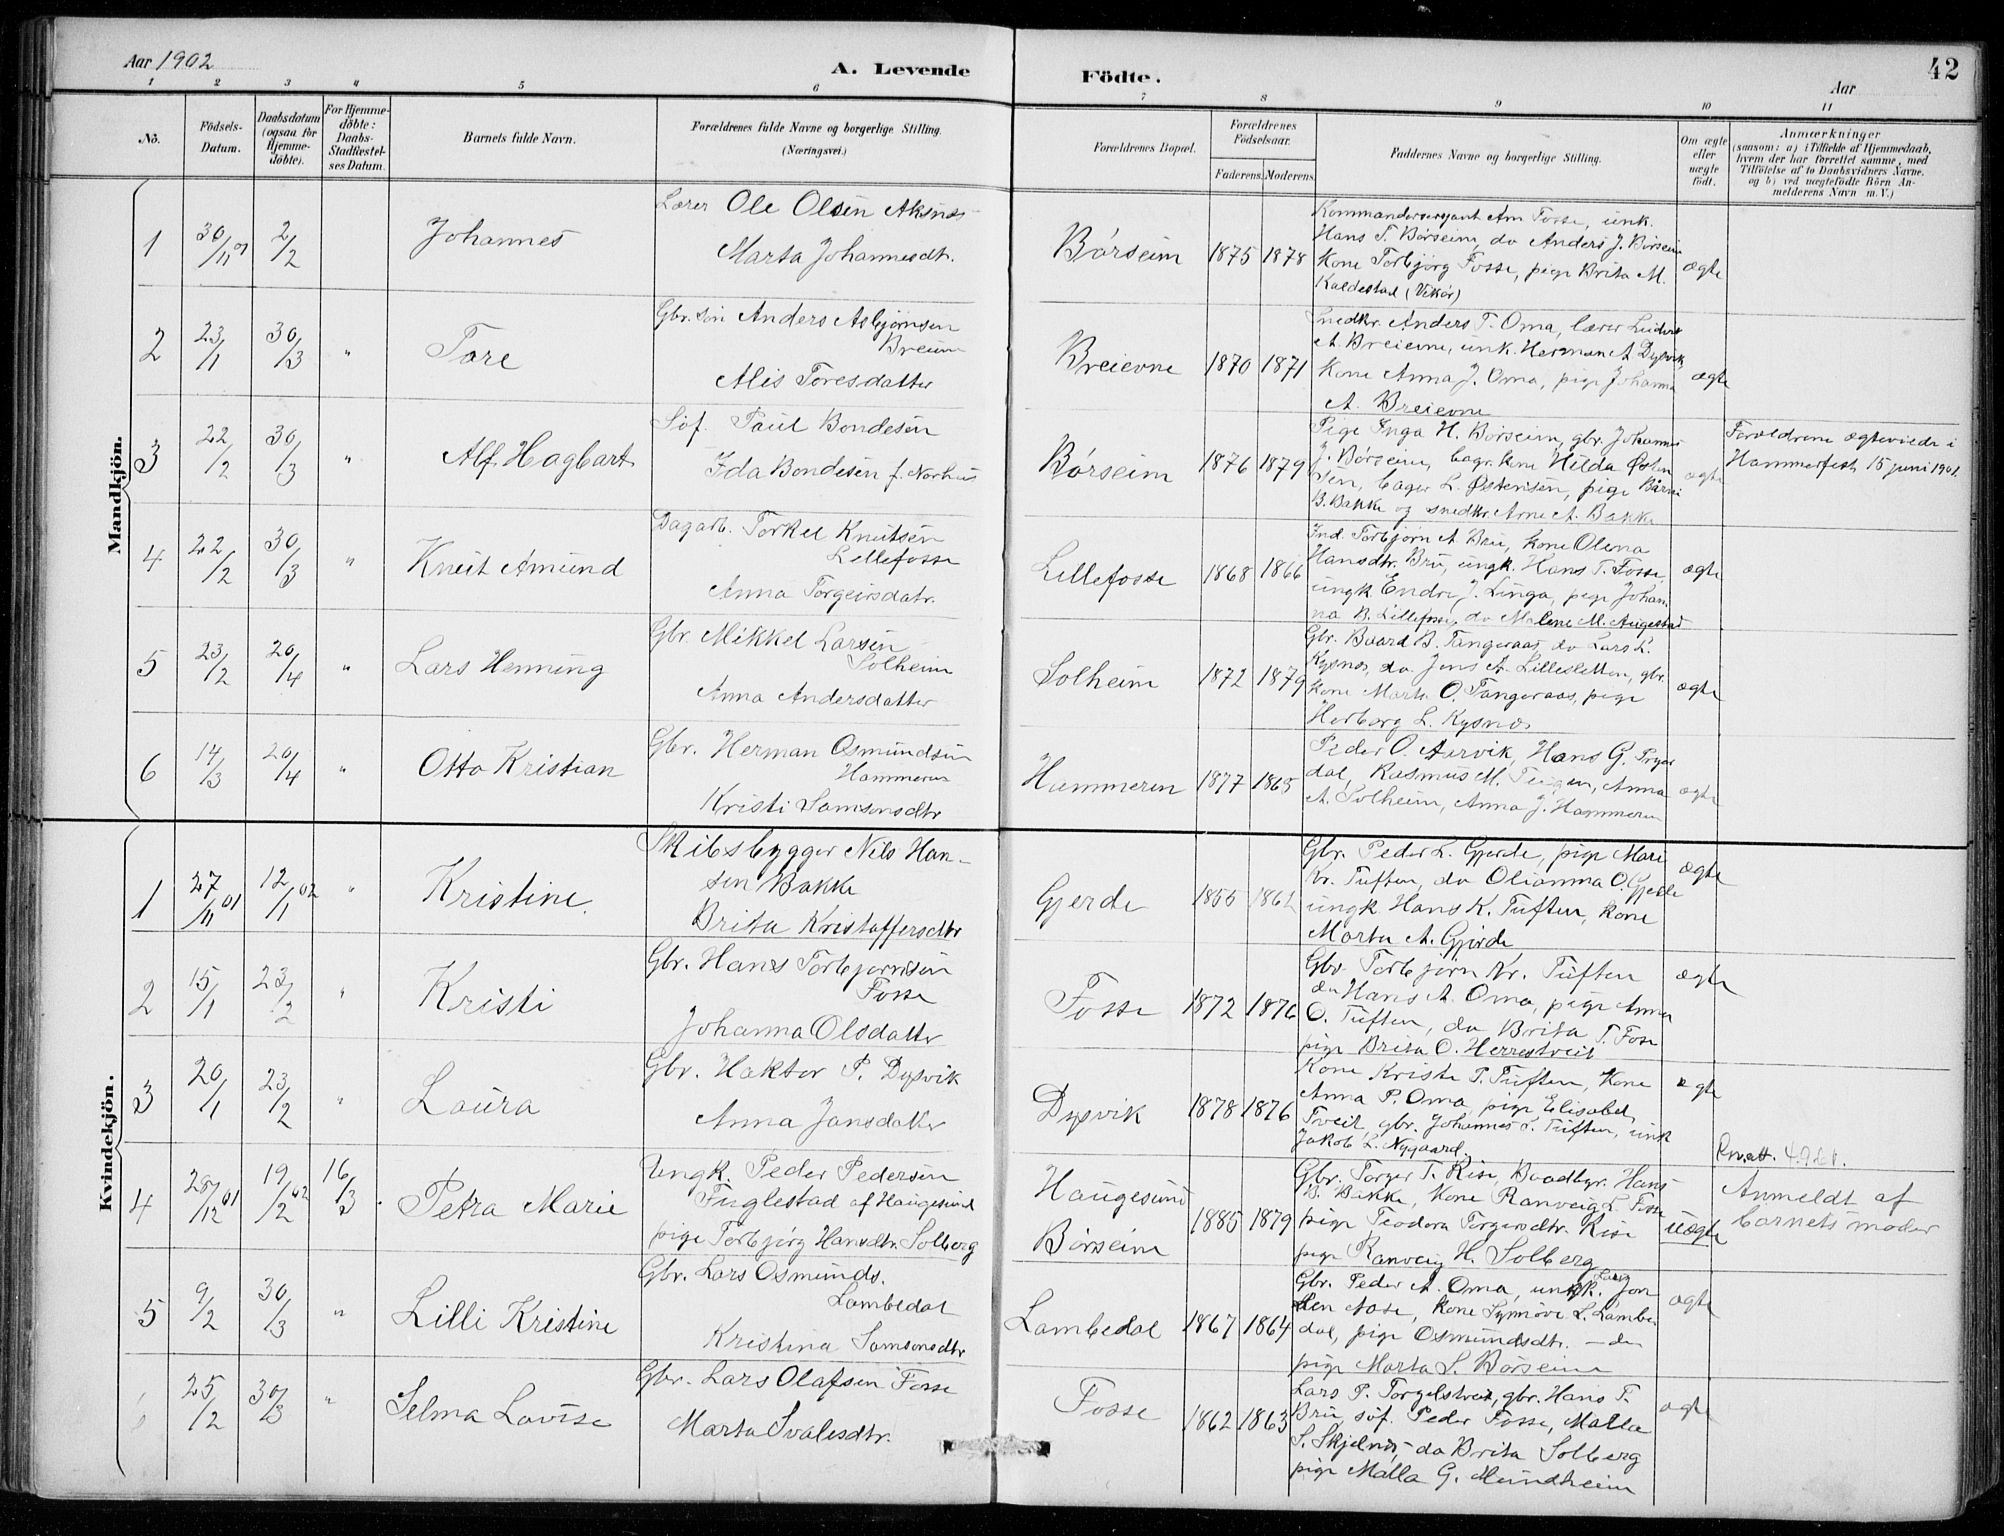 Aar 1902
A. Levende Födte.
Aar
42
1 2 3 4 5 6 7 8 9 10 11
No.
Födsels-
Datum.
Daabsdatum
(ogsaa for
Hjemme-
döbte).
For Hjemme-
döbte:
Daabs-
Stadfæstel-
ses Datum.
Barnets fulde Navn.
Forældrenes fulde Navne og borgerlige Stilling.
(Næringsvei.)
Forældrenes Bopæl.
Forældrenes
Födselsaar.
Faderens. Moderens.
Faddernes Navne og borgerlige Stilling.
Om ægte
eller
uægte
født.
Anmærkninger
(saasom: a) i Tilfælde af Hjemmedaab,
hvem der har forrettet samme, med
Tilföielse af to Daabsvidners Navne,
og b) ved uægtefödte Börn An-
melderens Navn m. V.)
Mandkjön.
1
30/11 01
2/2
Johannes
Lærer Ole Olsen Aksnes
Marta Johannesdtr.
Børseim
1875 1878
Kommandersergant Am Fosse, unk.
Hans T. Børseim, do Anders J. Børseim
Kone Torbjørg Fosse, pige Brita M.
Kaldestad (Vikør)
ægte
2
23/1
30/3
"
Tore
Gbr. søn Anders Asbjørnsen
Breievne
Alis Toresdatter
Breievne
1870 1871
Snedkr. Anders T. Oma, lærer
A. Breievne, unk. Herman A Dysvik,
Kone Anna J. Oma, pige Johanna
A. Breievne
ægte
3
22/2
30/3
"
Alf Hagbart
Søf. Paul Bondesen
Ida Bondesen f. Norhus
Børseim
1876 1879
Pige Inga H. Børseim, gbr. Johannes
J. Børseim, bagr. kone Hilda Østen
sen, bager L. Østensen, pige
B. Bakke og snedkr Arne A. Bakke
ægte
Forældrene ægteviede i
Hammerfest 15 juni 1901.
4
22/2
30/3
"
Knut Amund
Dagarb. Torkel Knutsen
Lillefosse
Anna Torgeirsdatr.
Lillefosse
1868 1866
Ind. Torbjørn A Bru, kone Olena
Hansdtr. Bru, ungk. Hans T. Fosse,
ungk Endre J. Linga, pige Johan
na B. Lillefosse, do Malene M. Augestad
ægte
5
23/2
20/4
"
Lars Henning
Gbr. Mikkel Larsen
Solheim
Anna Andersdatter
Solheim
1872 1879
Gbr. Baard B. Tangeraas, do Lars L.
Kysnes, do Jens A. Lillesletten, gbr.
kone Marta O. Tangeraas, pige
Herborg L. Kysnes
ægte
6
14/3
20/4
"
Otto Kristian
Gbr. Herman Osmundsen
Hammeren
Kristi Samsonsdtr
Hammeren
1877 1865
Peder O. Aarvik, Hans G.
dal, Rasmus M. Teigen, Anna
A. Solheim, Anna J. Hammeren
ægte
Kvindekjön.
1
27/11 01
12/1 02
"
Kristine.
Skibsbygger Nils Han-
sen Bakke
Brita Kristoffersdtr
Gjerde
1855 1862
Gbr. Peder L. Gjerde, pige Mari
Kr. Tuften, do Olianna O. Gjerde
ungk Hans K. Tuften, kone
Marta A. Gjerde
ægte
2
15/1
23/2
"
Kristi
Gbr. Hans Torbjørnsen
Fosse
Johanna Olsdatter
Fosse
1872 1876
Gbr Torbjørn Kr. Tuften
do Hans A. Oma, pige Anna
O. Tuften, do Brita T. Fosse
pige Brita O. Herrestveit
ægte
3
20/1
23/2
"
Laura
Gbr. Haktor P. Dysvik
Anna Jansdatter
Dysvik
1878 1876
Kone Kristi P. Tuften, Kone
Anna P. Oma, pige Elisabet
Tveit, gbr. Johannes L. Tuften, unk
Jakob L. Nygaard.
ægte
4
28/12 01
19/2 02
16/3.
Petra Marie
Ungk. Peder Pedersen
Fuglestad af Haugesund
pige Torbjørg Hansdtr. Solberg
Haugesund
Børseim
1885 1879
Gbr. Torger T. Risa, Baadbygr. Hans
B. Bakke, Kone Ranveig L. Fosse
pige Teodora Torgersdtr. Risa
pige Ranveig H. Solberg
uægte
Anmeldt af
barnets moder
5
9/2
30/3
"
Lilli Kristine
Gbr. Lars Osmunds.
Lambedal
Kristina Samsonsdtr
Lambedal
1867 1864
Gbr. Peder A. Oma, ungk. Jon
Aase, kone Synnøve L. Lambe
dal, pige Osmundsdtr. - do
pige Marta S. Børseim
ægte
25/2
30/3
"
Selma Lovise
Gbr. Lars Olafsen Fosse
Marta Svalesdtr.
Fosse
1862 1863
Lars P. Torgelstveit, gbr. Hans T.
Bru, søf. Peder Fosse, Malla
S. Skjelnes, do Brita Solberg
pige Malla G. Mundheim
ægte